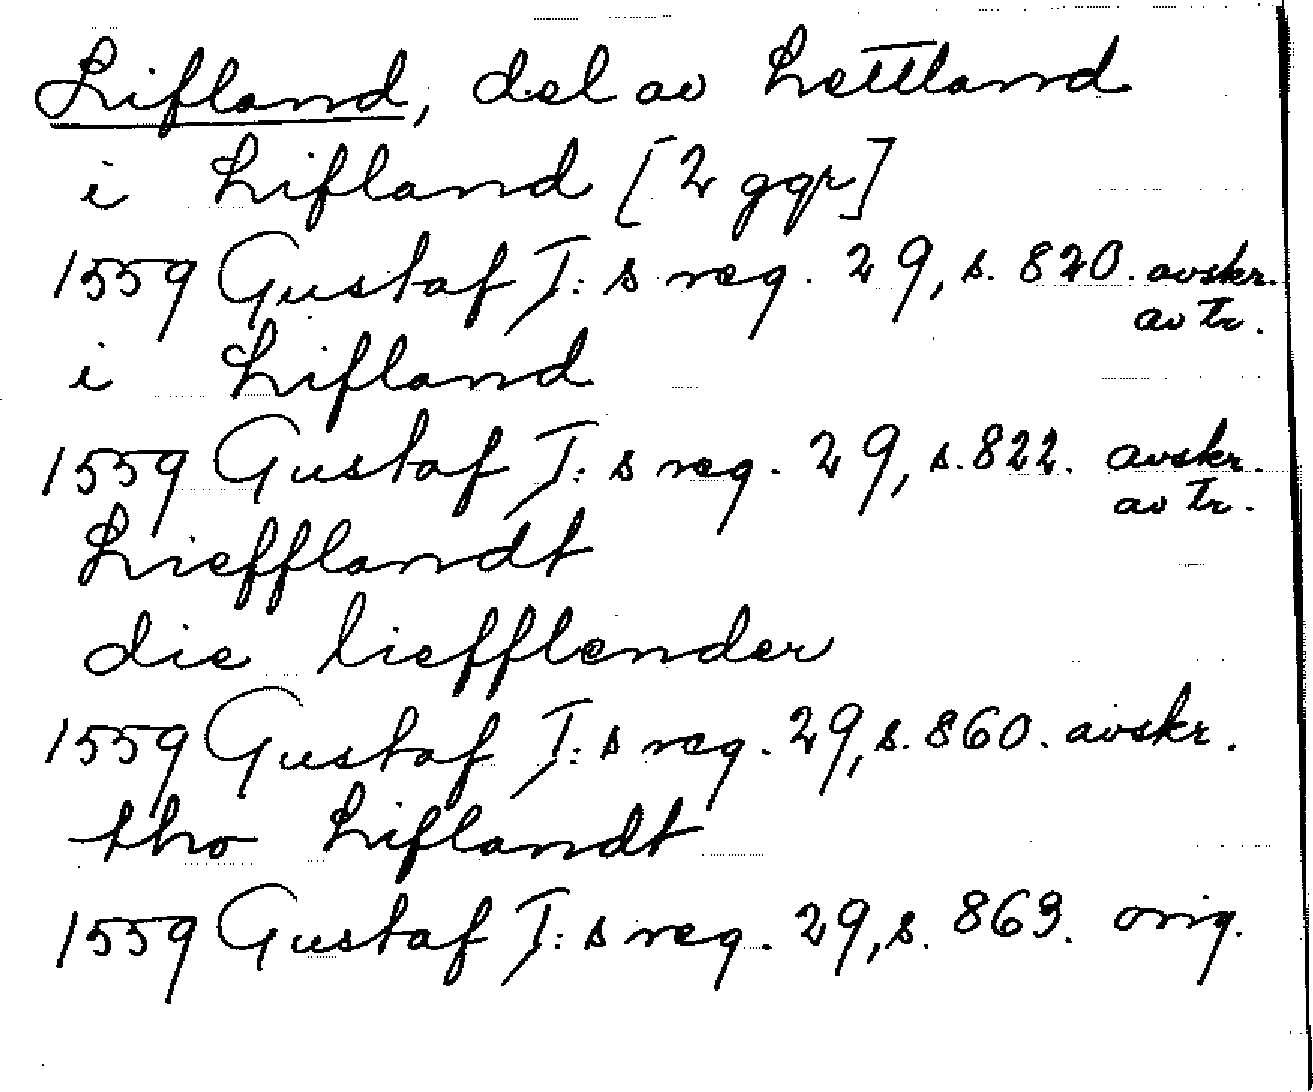 Lifland, del av Lettland
i Lifland [2 ggr]
1559 Gustaf I:s reg. 29, s. 820. avskr.
av tr.
i Lifland
1559 Gustaf I:s reg. 29, s. 822. avskr.
av tr.
Liefflandt
die liefflender
1559 Gustaf I:s reg. 29, s. 860. avskr.
tho Liflandt
1559 Gustaf I:s reg. 29, s. 863. orig.